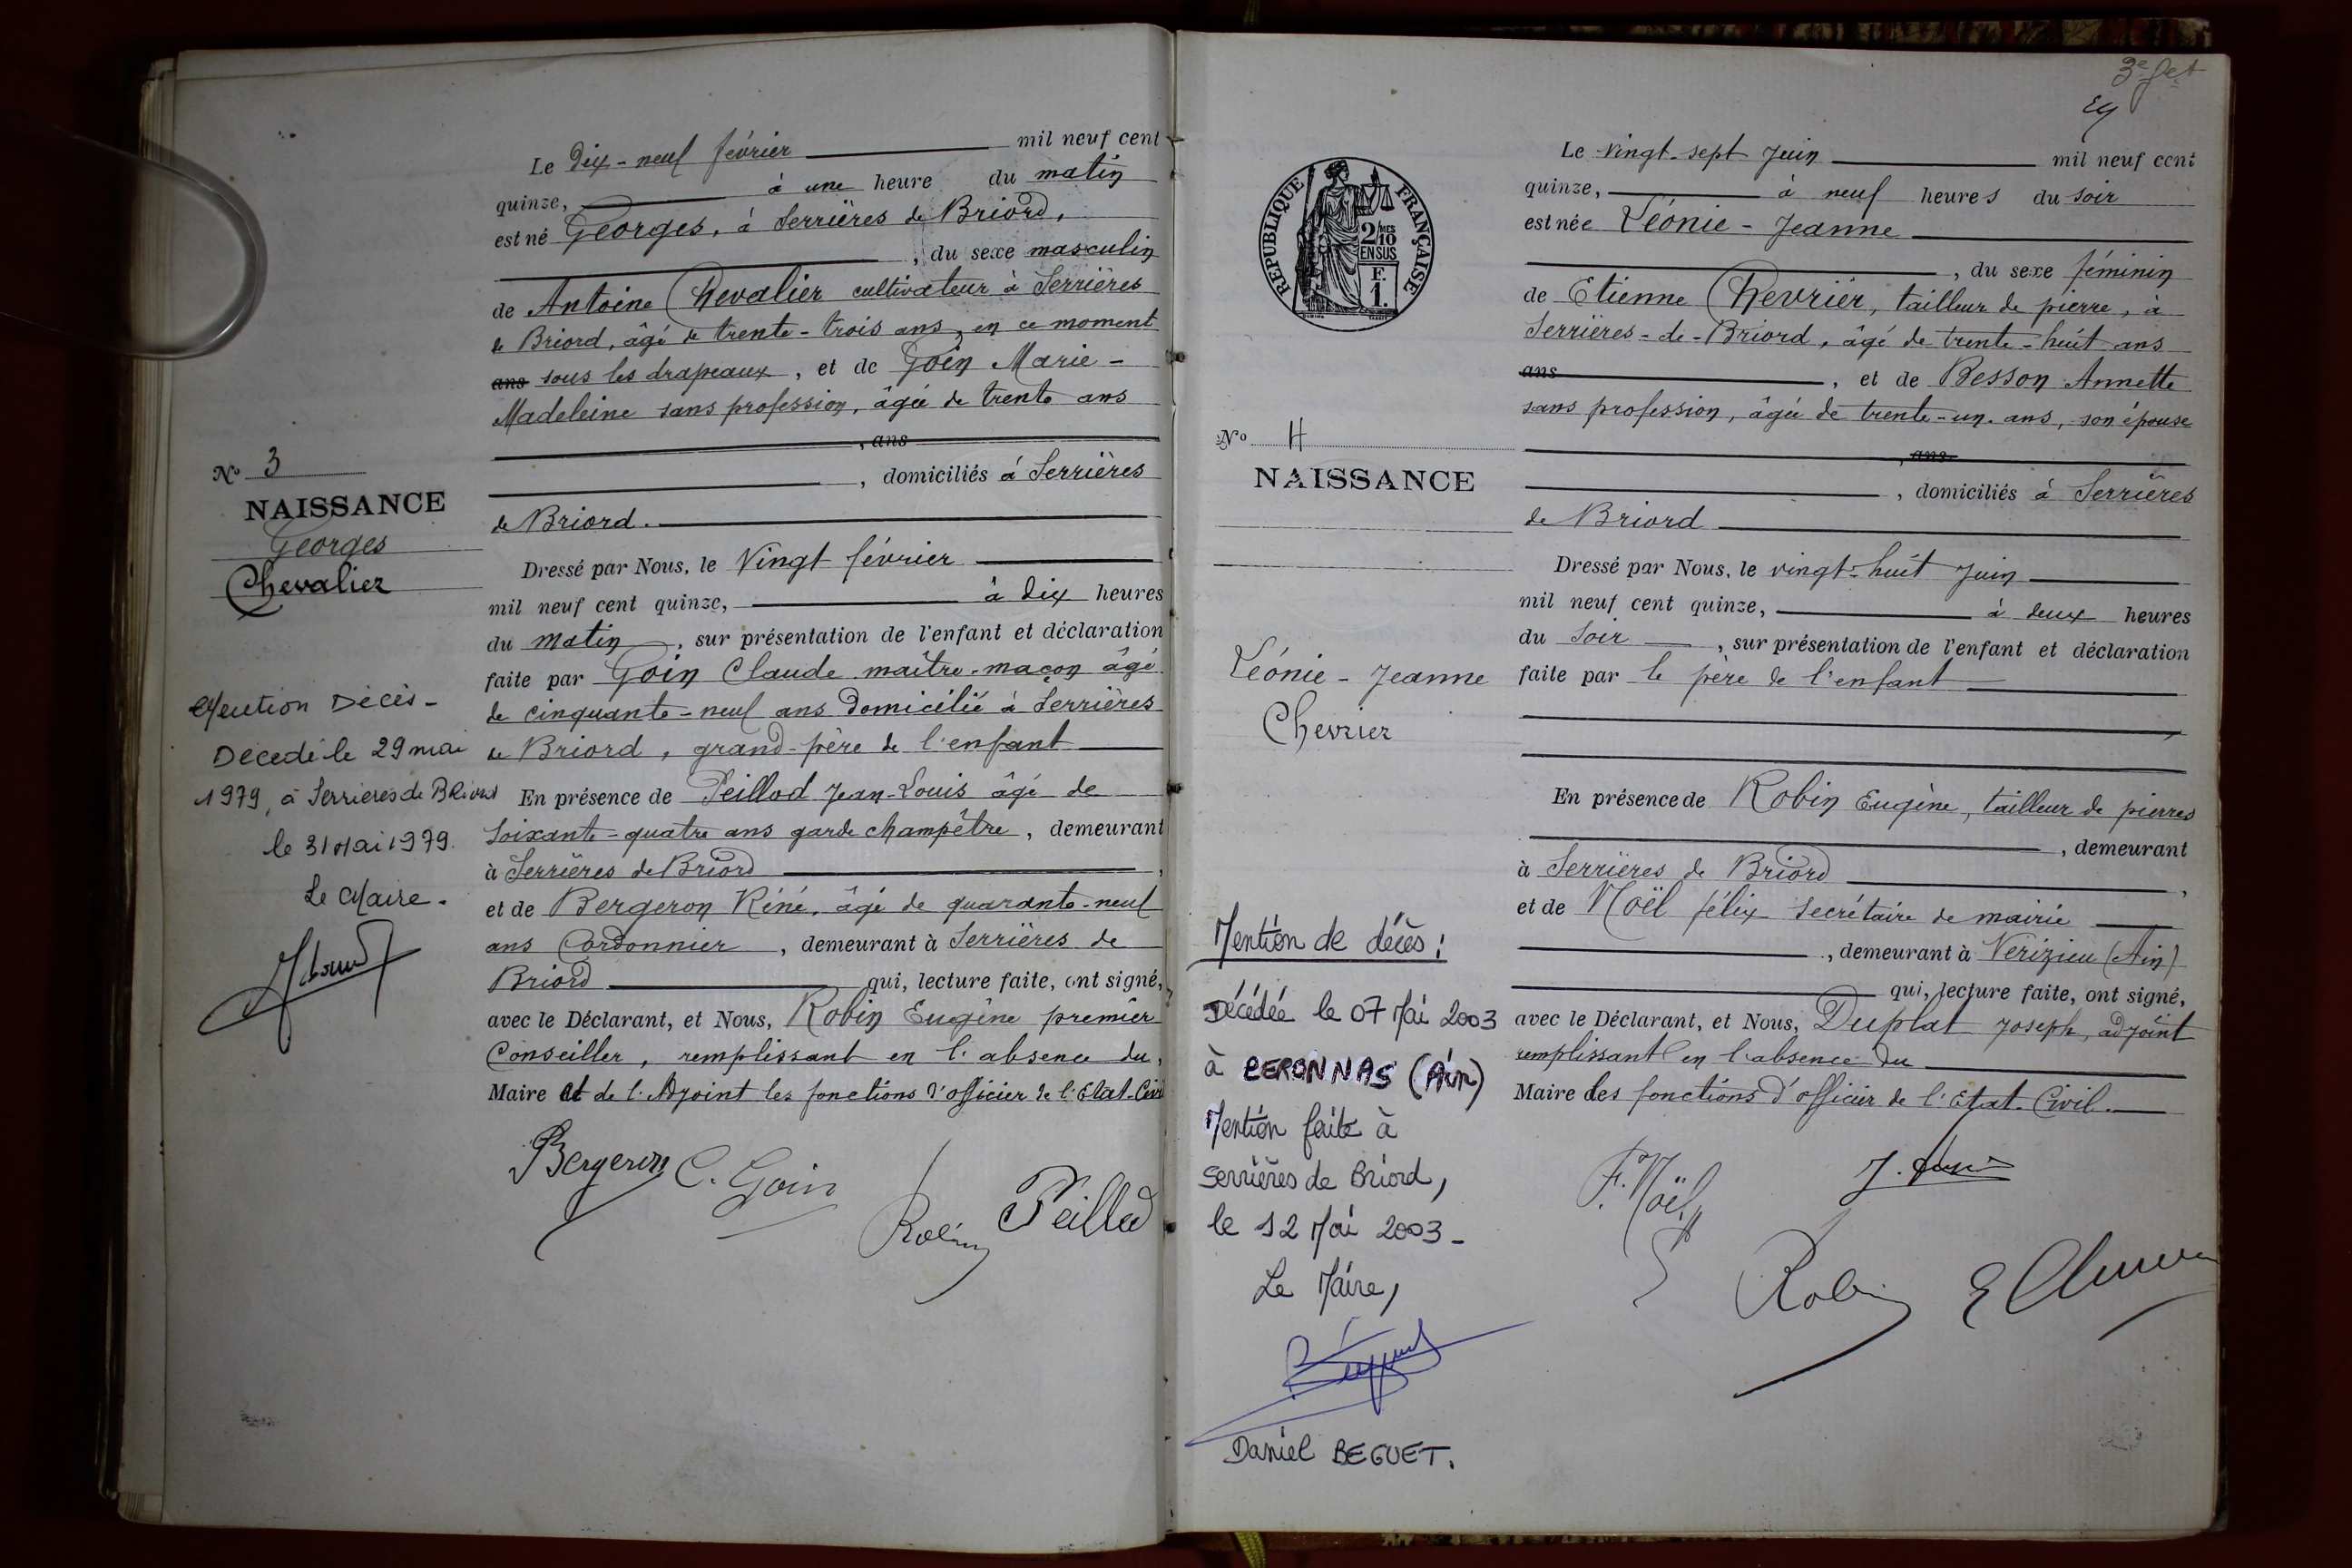 Le Dix-neuf février mil neuf cent
quinze, à une heure du matin
est né Georges, à Serrières de Briord,
, du sexe masculin
de Antoine Chevalier cultivateur à Serrières
de Briord, âgé de trente-trois ans, en ce moment
ans sous les drapeaux, et de Goin Marie-
Madeleine sans profession, âgée de trente ans
, ans
, domiciliés à Serrières
de Briord.
Dressé par Nous, le Vingt février
mil neuf cent quinze, à dix heures
du matin, sur présentation de l'enfant et déclaration
faite par Goin Claude maître-maçon âgé
de cinquante-neuf ans domicilié à Serrières
de Briord, grand-père de l'enfant
En présence de Peillod Jean-Louis âgé de
soixante-quatre ans garde champêtre, demeurant
à Serrières de Briord,
et de Bergeron Réné, âgé de quarante-neuf
ans Cordonnier, demeurant à Serrières de
Briord qui, lecture faite, ont signé,
avec le Déclarant, et Nous, Robin Eugène premier
Conseiller, remplissant en l'absence du,
Maire et de l'Adjoint les fonctions d'officier de l'Etat-Civil
Bergeron C. Goin
Robin Peillod
No 3
NAISSANCE
Georges
Chevalier
Mention Décès -
Décédé le 29 mai
1979, à Serrieres de BRiord
le 31 Mai 1979.
Le Maire.
3e fet
Le vingt-sept Juin mil neuf cent
quinze, à neuf heures du soir
est née Léonie-Jeanne
, du sexe féminin
de Etienne Chevrier, tailleur de pierre, à
Serrières-de-Briord, âgé de trente-huit ans
ans, et de Besson Annette
sans profession, âgée de trente-un ans, son épouse
, ans
, domiciliés à Serrières
de Briord
Dressé par Nous, le vingt-huit Juin
mil neuf cent quinze, à deux heures
du soir, sur présentation de l'enfant et déclaration
faite par le père de l'enfant
,
En présence de Robin Eugène, tailleur de pierres
, demeurant
à Serrières de Briord,
et de Noël félix secrétaire de mairie
, demeurant à Vérizieu (Ain)
qui, lecture faite, ont signé,
avec le Déclarant, et Nous, Duplat Joseph, adjoint
remplissant en l'absence du
Maire les fonctions d'officier de l'Etat-Civil.
F. Noël
Robin
REPUBLIQUE FRANÇAISE
2/10 MES
EN SUS
F.
1.
No 4
NAISSANCE
Léonie-Jeanne
Chevrier
Mention de décès:
Décédée le 07 Mai 2003
à PERONNAS (Ain)
Mention faite à
Serrières de Briord,
le 12 Mai 2003-
Le Maire,
Daniel BEGUET.